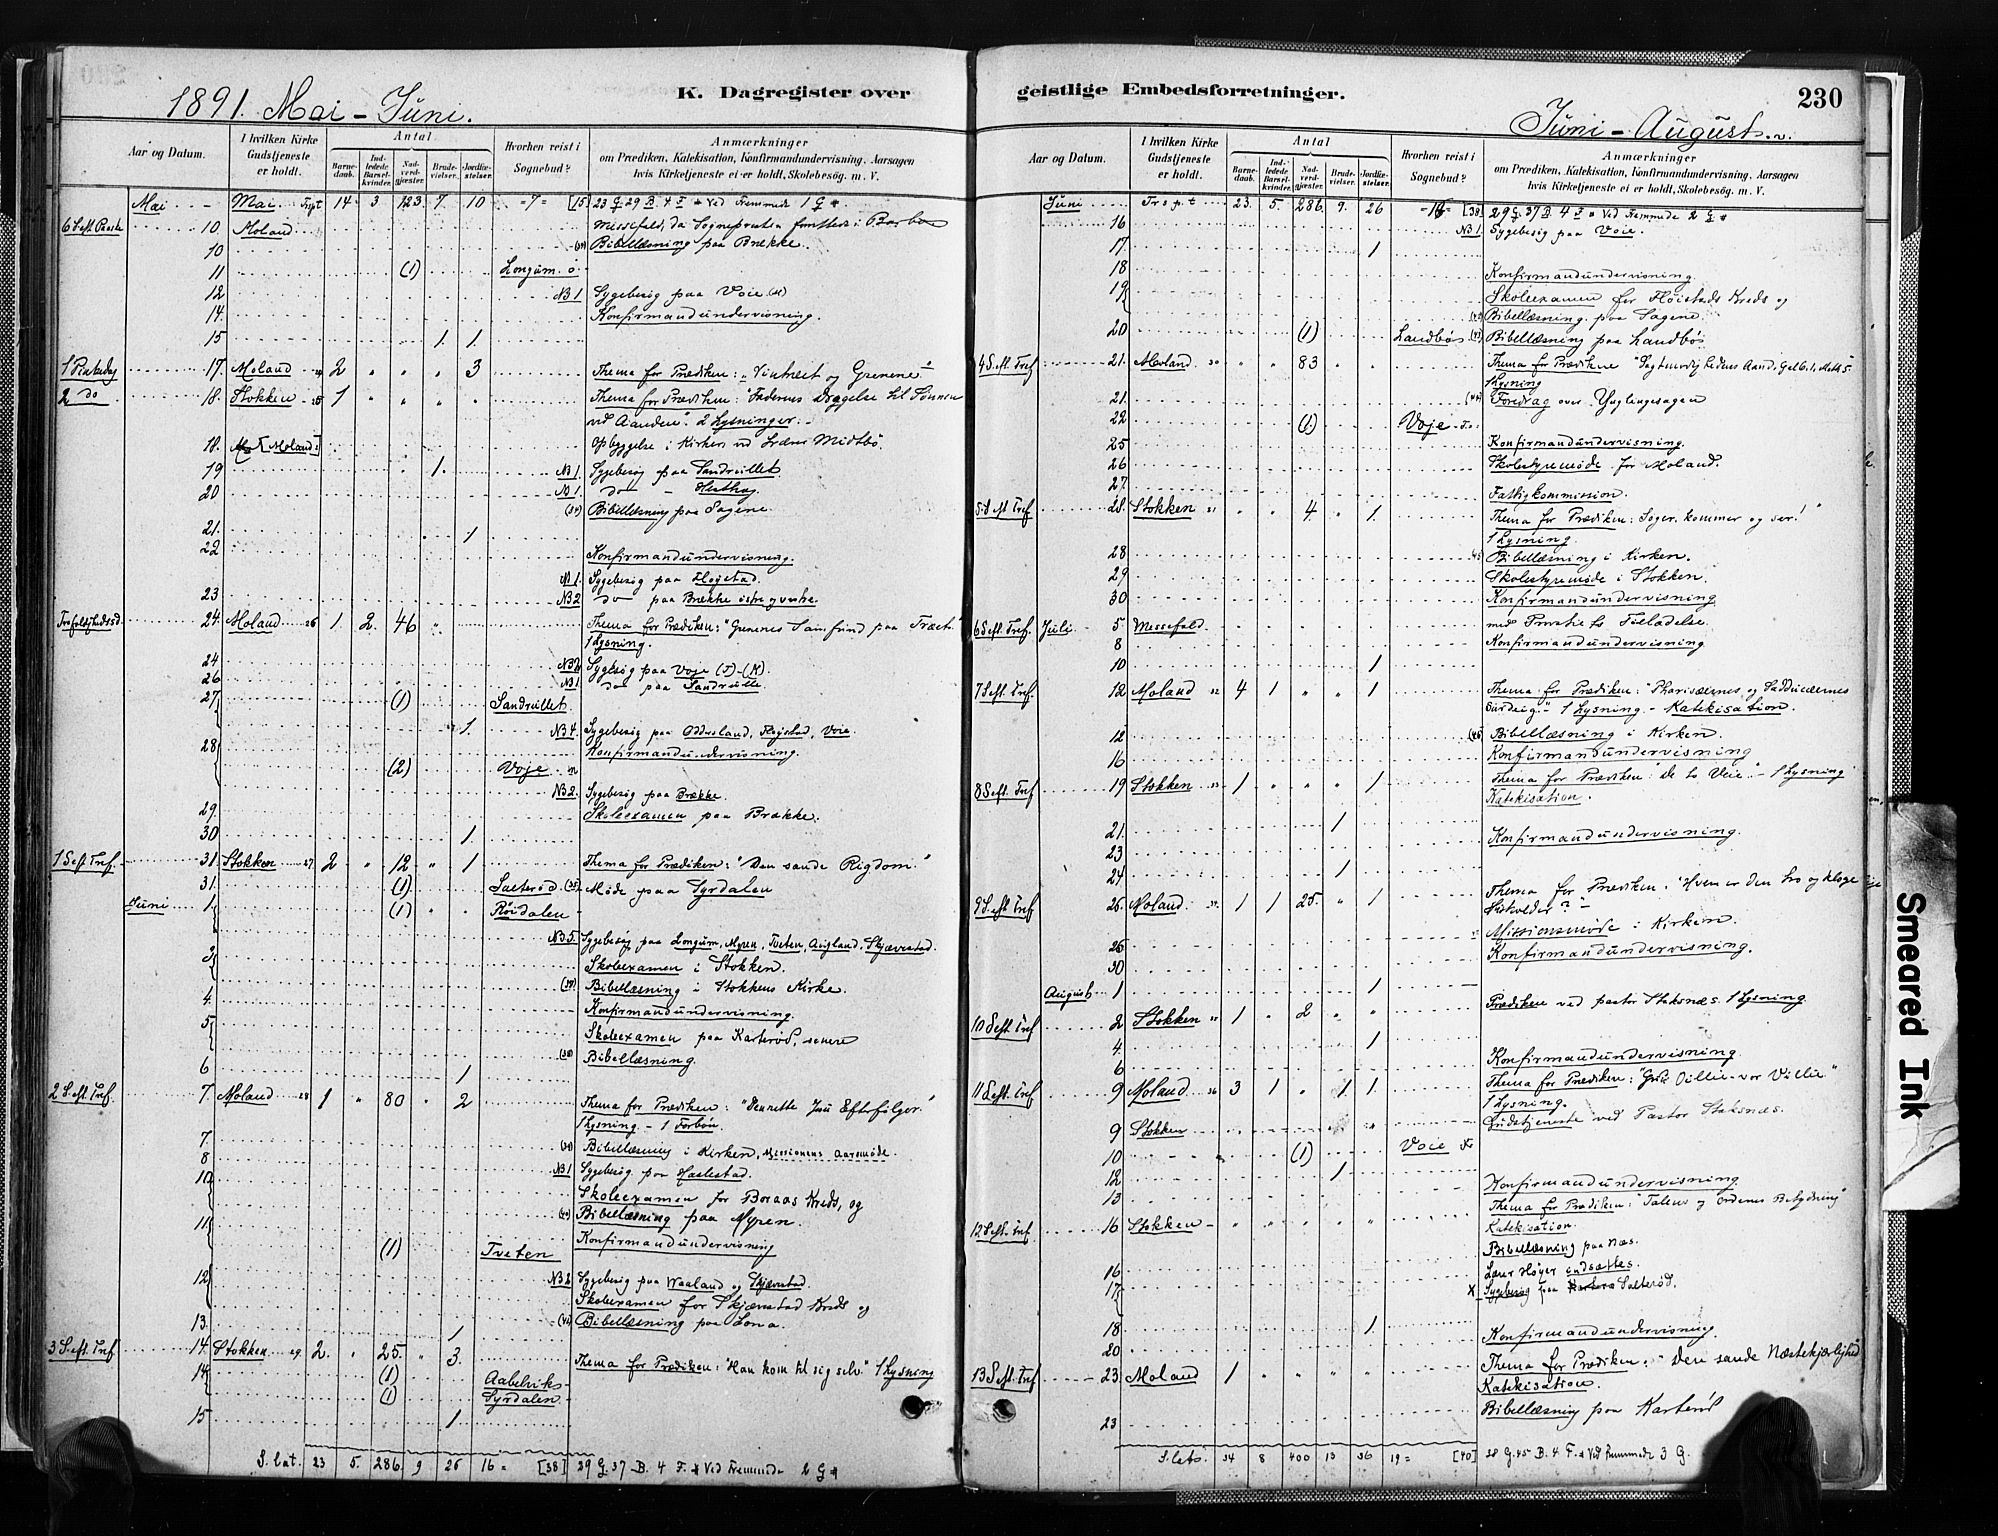 230
1891. Mai - Juni.
K. Dagregister over
Aar og Datum.
I hvilken Kirke Gudstjeneste er holdt.
Antal
Barnedaab.
Indledede Barselkvinder.
Nadverdgjæster.
Brudevielser.
Jordfæstelser.
Hvorhen reist i Sognebud?
Anmærkninger
om Prædiken, Katekisation, Konfirmandundervisning, Aarsagen
hvis Kirketjeneste ei er holdt, Skolebesøg. m. V.
Mai Mai Trpt 14 3 123 7 10 =7= [15] 23 G 29 B 4 F * Ved Fremmede 1 G *
6 S. eft. Paaske 10. Moland Messefald, da Sognepræsten forrettede i Barbo
10 Bibellæsning paa Brække.
11 (1) Longum
12 NB 1 Sygebesøg paa Voie
14. Konfirmandundervisning.
15 1. 1.
1 Pinkedag 17. Moland 24 2 " " " 3 Thema for Prædiken: "Vintræet og Grenene"
2 do 18. Stokken 25 1 " " " " Thema for Prædiken: "Faderens Dragelse til Sønnen
ved Aanden". 2 Lysninger.
18. [Moland] Opbyggelse i Kirken ved Lærer Midtbø
19 1. NB 1. Sygebesøg paa Sandvullet
20 NB 1 do - Hesthag
Bibellæsning paa Sagene.
21. 1
22 Konfirmandundervisning.
NB 1. Sygebesøg paa Højestad.
23 NB 2 do paa Brække østre og vestre.
Trefoldighedssd 24. Moland 26 1 2 46 " Thema for Prædiken: "Grenenes Samfund paa Træet."
1 Lysning.
24 NB 2 Sygebesøg paa Voje
26 NB 1 do paa Sandvulle
27 (1) Sandvullet
1. NB 4. Sygebesøg paa Oddersland, Højstad, Voie.
28 Konfirmandundervisning.
(2) Voje
NB 2. Sygebesøg paa Brække.
29. Skoleexamen paa Brække.
30 1.
1 S eft Tref. 31. Stokken 27 2 " 12 " 1 Thema for Prædiken: "Den sande Rigdom"
31. (1) Salterød (35) Møde paa Syrdalen
Juni 1. (1) " " Røirdalen
NB 5. Sygebesøg paa Longum, Myren, Tveten, Augland, Skjævestad.
3 Skoleexamen i Stokken.
Bibellæsning i Stokkens Kirke.
4. Konfirmandundervisning.
5 Skoleexamen paa Karterød, senere
(38) Bibellæsning.
6 1
2 S. eft. Tref. 7. Moland 28 1 " 80 " 2 Thema for Prædiken: "Den rette Jesu Efterfølger"
1 Lysning - 1 Forbøn.
7. Bibellæsning i Kirken, Missionens Aarsmøde
8 NB 1 Sygebesøg paa Haslestad.
10 Skoleexamen for Boraas Kreds, og
(40) Bibellæsning paa Myren.
11 Konfirmandundervisning
(1) Tveten
12 NB 2 Sygebesøg paa Waaland og Skjævestad.
Skoleexamen for Skjævestad Kreds og
(41) Bibellæsning paa Lona.
13. 1
3 S. eft Tref 14. Stokken 29. 2. " 25. " 3. Thema for Prædiken: "Han kom til sig selv" 1 Lysning
14 (1) Aabelvik
(1) Syrdalen
15 1
S. lat. 23 5. 286. 9 26 16 = [38] 29 G. 37 B. 4 F. * Ved Fremmede 2 G *
geistlige Embedsforretninger.
Juni - August
Aar og Datum.
I hvilken Kirke Gudstjeneste er holdt.
Antal
Barnedaab.
Indledede Barselkvinder.
Nadverdgjæster.
Brudevielser.
Jordfæstelser.
Hvorhen reist i Sognebud?
Anmærkninger
om Prædiken, Katekisation, Konfirmandundervisning, Aarsagen
hvis Kirketjeneste ei er holdt, Skolebesøg. m. V.
Juni Trspt 23. 5. 286. 9. 26 =16= [38] 29 G. 37 B. 4 F * Ved Fremmede 2 G *
16 NB 1. Sygebesøg paa Voie.
17 1
18 Konfirmandundervisning.
19 Skoleexamen for Høiestads Kreds og
Bibellæsning paa Sagene.
20 (1) Landbø (43) Bibellæsning paa Landbø
4 S. eft. Tref 21. Moland 30 " " 83 " Thema for Prædiken "Sagtmodighedens Aand. Gal 6.1. Math 5
1 Lysning
21. (44) Foredrag over Ynglingesagen
22 (1) Voje
25 Konfirmandundervisning.
26 Skolestyremøde for Moland.
27. Fattigkommission.
5. S. eft Tref 28. Stokken 31 " " 4. " 1. Thema for Prædiken: Søger, kommer og ser!"
1 Lysning.
28 45 Bibellæsning i Kirken.
29 Skolestyremøde i Stokken.
30 Konfirmandundervisning
6 S eft. Tref. Juli 5 Messefald. med Provstiets Tilladelse.
8 Konfirmandundervisning
10 1
7 S eft. Tref. 12 Moland 32 4 1 " " 1 Thema for Prædiken: "Pharisæernes og Sadducæernes
Surdeig." - 1 Lysning - Katekisation.
12 (46) Bibellæsning i Kirken.
16 Konfirmandundervisning
8 S eft. Tref 19 Stokken 33 1 " " " 1 Thema for Prædiken: De to Veie." - 1 Lysning
Katekisation.
21. 1
23 Konfirmandundervisning.
24. 1
9 S. eft Tref 26. Moland 34 1 1 25. " 1 Thema for Prædiken: "Hvem er den tro og kloge
Husholder?" -
26 Missionsmøde i Kirken.
30 Konfirmandundervisning.
August 1 1
10 S eft. Tref 2 Stokken 35 1 " 2 " " Prædiken ved pastor Staksnæs. 1 Lysning
4. 1
6 Konfirmandundervisning.
11 S eft Tref 9 Moland 36 3 1 " 1. 1 Thema for Prædiken: "Guds Villie - vor Villie"
1 Lysning.
9 Stokken Gudstjeneste ved Pastor Staksnæs.
10 (1) Voie
12 1
13 Konfirmandundervisning
12 S. eft. Tref 16 Stokken - " " " " " Thema for Prædiken: "Talens og Ordenes Betydning"
Katekisation.
16 Bibellæsning paa Næs.
17 Lærer Høyer indsættes.
X Sygebesøg paa Salterød.
18 1
20 Konfirmandundervisning.
13 S eft. Tref 23. Moland 1 " " " " Thema for Prædiken: "Den sande Næstekjærlighed
Katekisation.
23 Bibellæsning paa Karterød
S. lats. 34 8 400 13 36 19 = [40] 38 G. 45 B. 4 F. * Ved Fremmede 3 G.
Smeared Ink